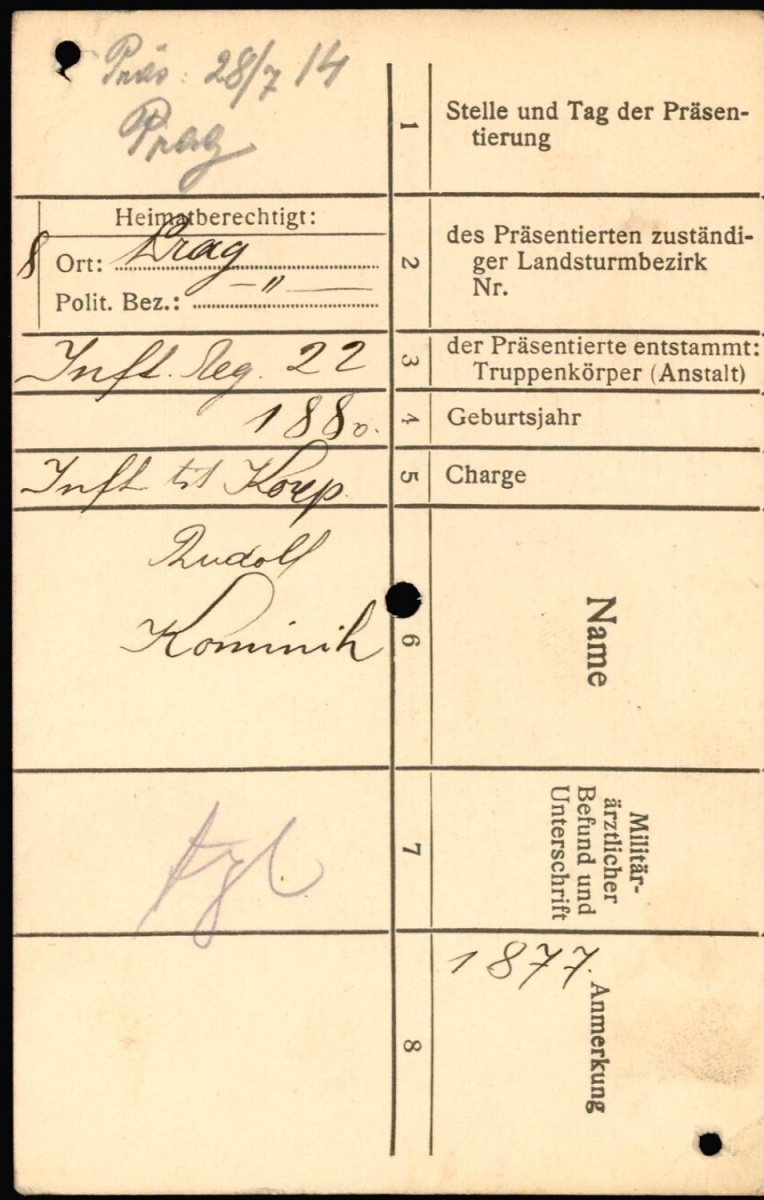 Präs: 28/7 14
Prag
1
Stelle und Tag der Präsen-
tierung
Heimatberechtigt:
8
Ort: Prag
Polit. Bez.: –"–
2
des Präsentierten zuständi-
ger Landsturmbezirk
Nr.
Inft. Reg. 22
3
der Präsentierte entstammt:
Truppenkörper (Anstalt)
1880.
4
Geburtsjahr
Inft tit Korp.
5
Charge
Rudolf
Kominik
6
Name
tgl
7
Militär-
ärztlicher
Befund und
Unterschrift
8
1877.
Anmerkung